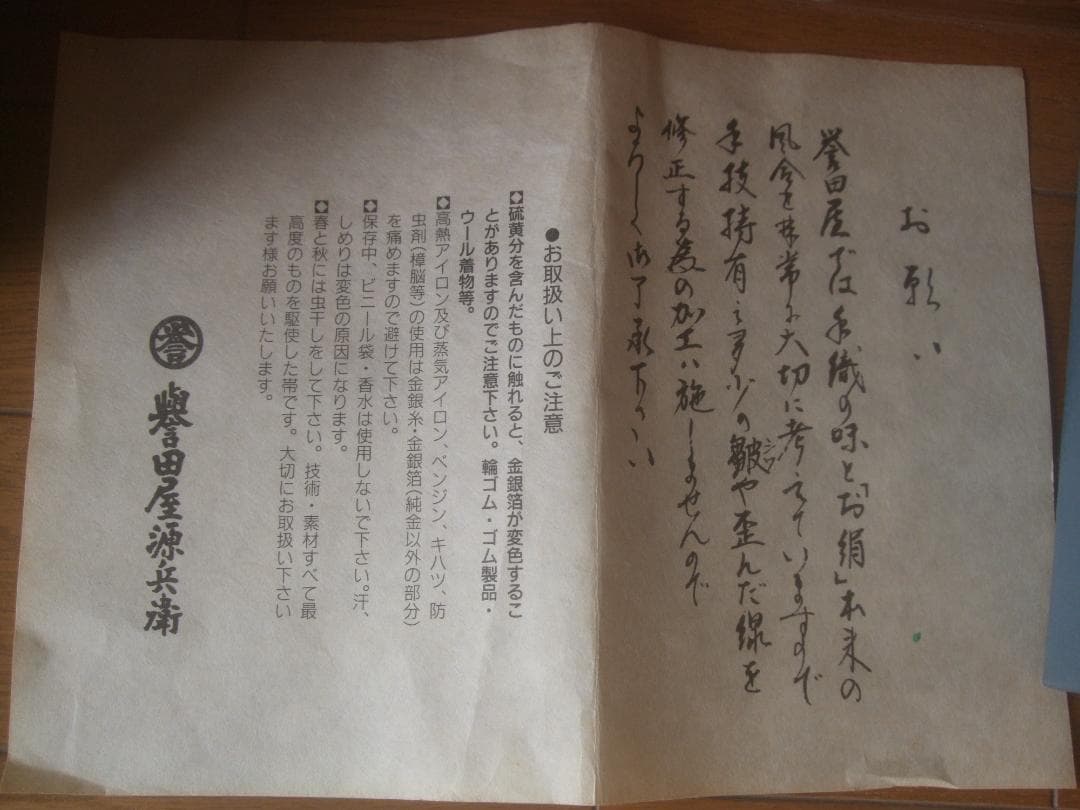 お願い
誉田屋では手織の味と「お絹」本来の
風合を非常に大切に考えていますので
手技持有之多少の皺や歪んだ線を
シワ
修正する為の加工は施しませんので
よろしく御了承下さい
●お取扱い上のご注意
◆硫黄分を含んだものに触れると、金銀箔が変色するこ
とがありますのでご注意下さい。輪ゴム・ゴム製品・
ウール着物等。
◆高熱アイロン及び蒸気アイロン、ベンジン、キハツ、防
虫剤（樟脳等）の使用は金銀糸・金銀箔（純金以外の部分）
を痛めますので避けて下さい。
◆保存中、ビニール袋・香水は使用しないで下さい。汗、
しめりは変色の原因になります。
◆春と秋には虫干しをして下さい。技術・素材すべて最
高度のものを駆使した帯です。大切にお取扱い下さい
ます様お願いいたします。
誉
譽田屋源兵衛